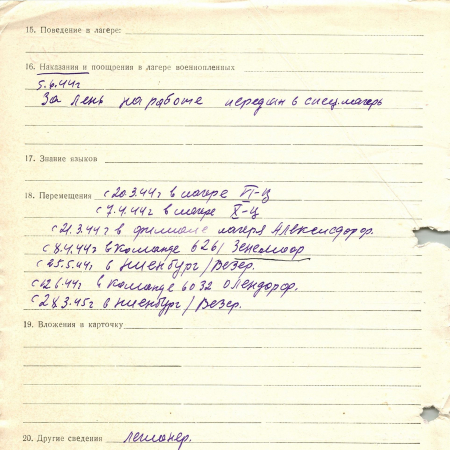 15. Поведение в лагере:
16. Наказания и поощрения в лагере военнопленных
5.6.44г
За лень на работе передан в спец.лагерь
17. Знание языков
18. Перемещения с 20.3.44г в лагере VI-Ц
с 7.4.44г в лагере X-Ц
с 21.3.44г в филиале лагеря Алексисдорф.
с 8.4.44г в команде 626/ Зенемоор
с 25.5.44г в Ниенбург/Везер.
с 12.6.44г в команде 6032 Олендорф.
с 28.3.45г в Ниенбург/Везер.
19. Вложения в карточку
20. Другие сведения легионер.